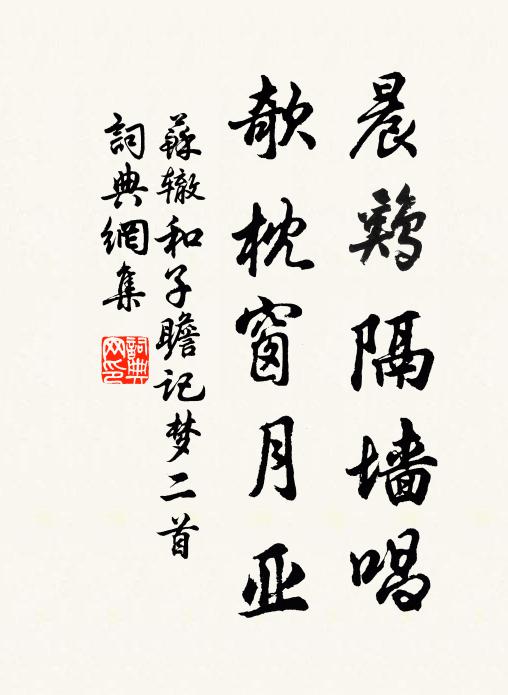 晨鷄隔墙唱
欹枕窗月亚
蘇辙和子瞻记梦二首
詞典網集
詞典网印